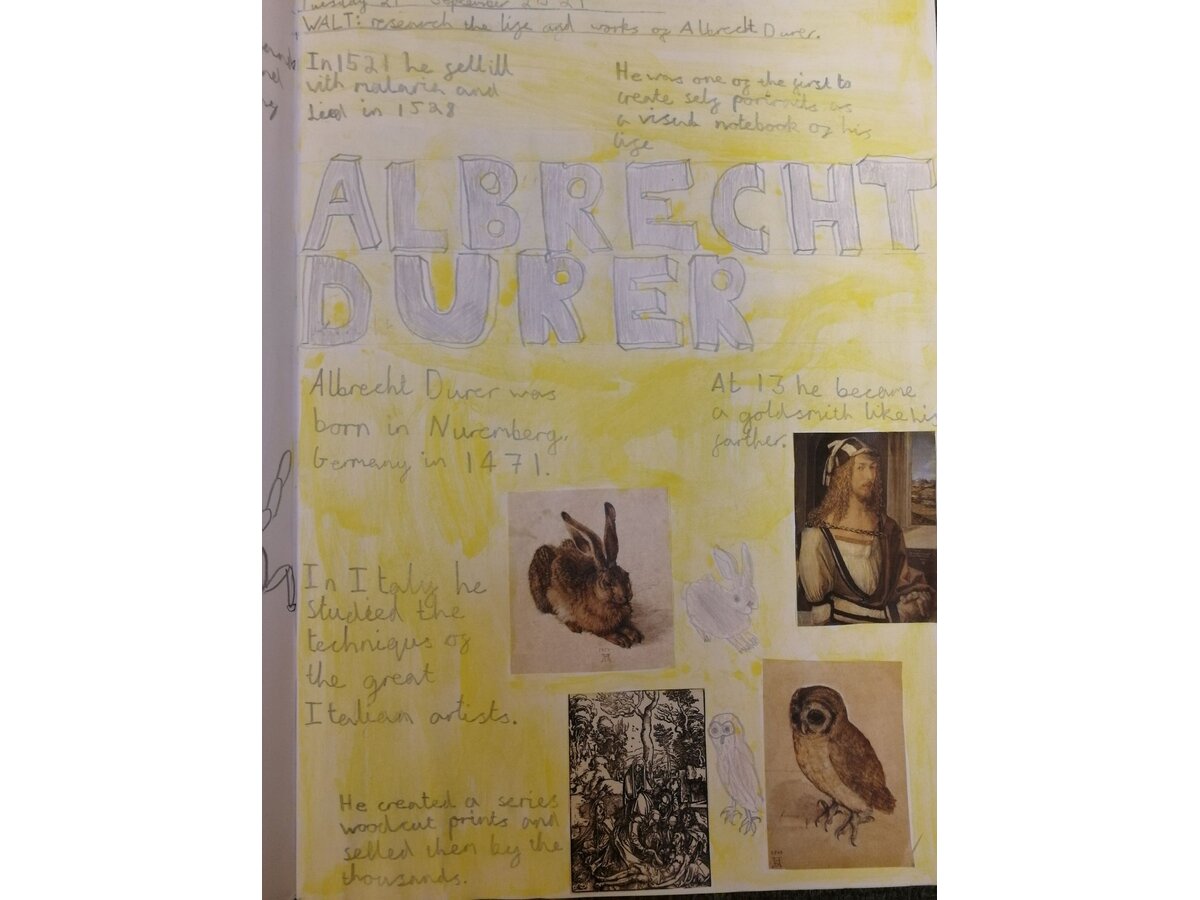 Tuesday 21 September 2021
WALT: research the life and works of Albrecht Durer.
In 1521 he fell ill
with malaria and
died in 1528
He was one of the first to
create self portraits as
a visual notebook of his
life
ALBRECHT
DURER
Albrecht Durer was
born in Nuremberg,
Germany in 1471.
At 13 he became
a goldsmith like his
farther.
In Italy he
studied the
techniqus of
the great
Italian artists.
He created a series
woodcut prints and
selled then by the
thousands.